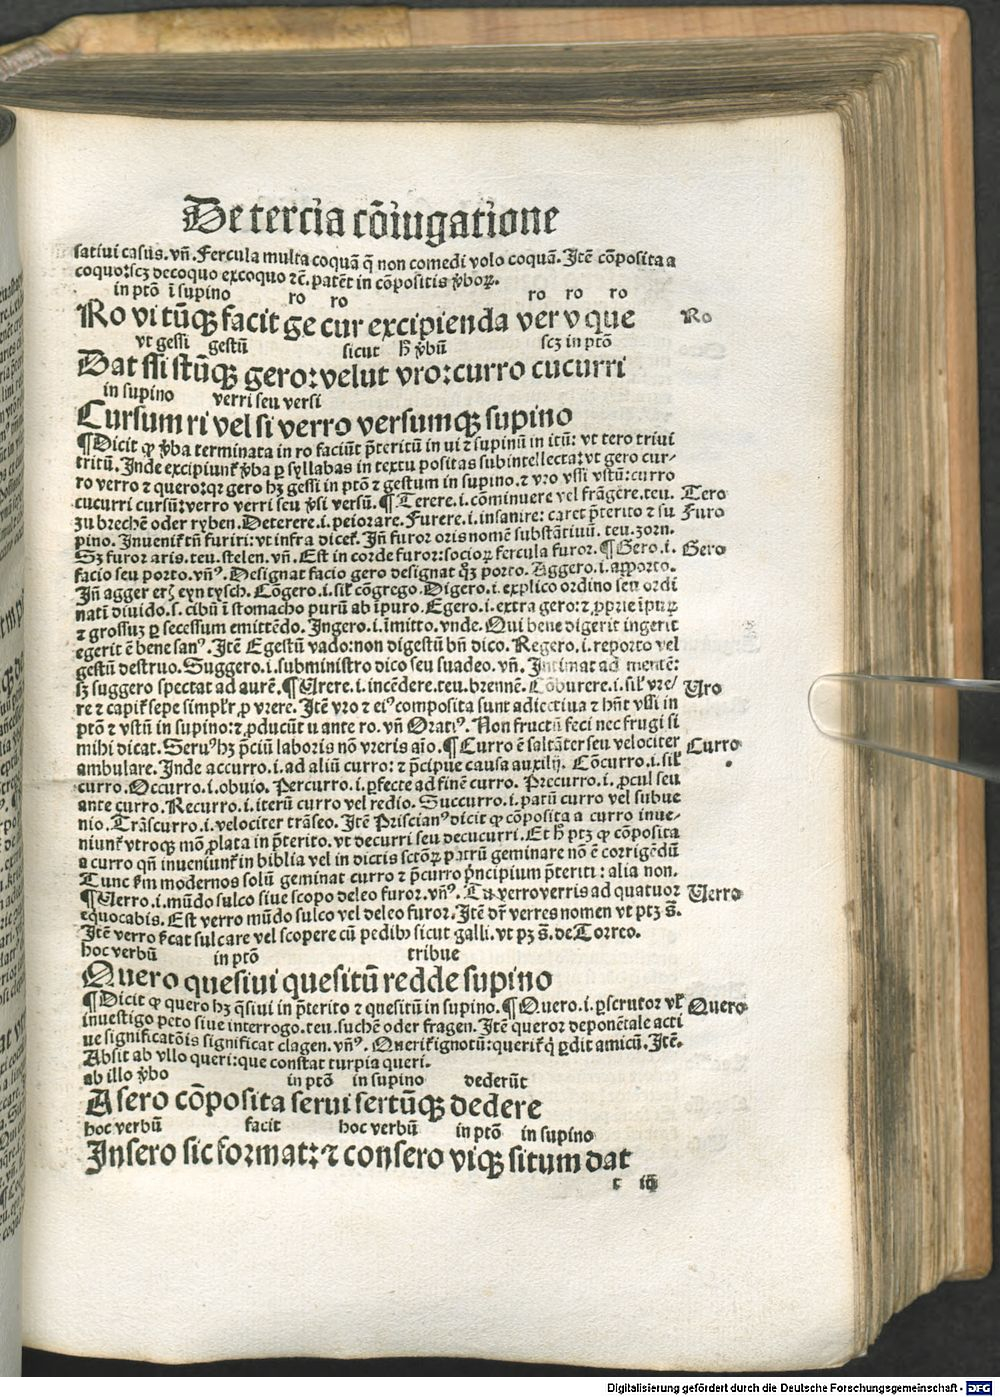 De tercia cōiugatione
satiui casus. vñ. Fercula multa coquā q̄ non comedi volo coquā. Itē cōposita a
coquo: scꝫ decoquo excoquo ⁊c̄. patēt in cōpositis v̄boꝝ.
in ptō ī supino ro ro ro ro ro
Ro vi tūqꝫ facit ge cur excipienda ver v que Ro
vt gessi gestū sicut h̄ v̄bū scꝫ in ptō
Dat ssi stūqꝫ gero: velut vro: curro cucurri
in supino verri seu versi
Cursum ri vel si verro versumqꝫ supino
¶Dicit ꝙ v̄ba terminata in ro faciūt p̄teritū in ui ⁊ supinū in itū: vt tero triui
tritū. Inde excipiunt̄ v̄ba ꝑ syllabas in textu positas subintellecta: vt gero cur⸗
ro verro ⁊ quero: qꝛ gero hꝫ gessi in ptō ⁊ gestum in supino. ⁊ vro vssi vstū: curro
cucurri cursū: verro verri seu v̄si versū. ¶Terere .i. cōminuere vel frāgere. teu. Tero
zu brechē oder ryben. Deterere .i. peiorare. Furere .i. insanire: caret p̄terito ⁊ su Furo
pino. Inuenit̄ tñ furiri: vt infra dicet̄. Jñ furor oris nomē substātiuū. teu. zorn.
Sꝫ furor aris. teu. stelen. vñ. Est in corde furor: socioꝝ fercula furor. ¶Gero .i. Gero
facio seu porto. vñꝰ. Designat facio gero designat qꝫ porto. Aggero .i. apporto.
Jñ agger erꝭ eyn tysch. Cōgero .i. sil̄ cōgrego. Digero .i. explico ordino seu ordi
natī diuido .s. cibū ī stomacho purū ab īpuro. Egero .i. extra gero: ⁊ ꝓprie īpuꝝ
⁊ grossuꝫ ꝑ secessum emittēdo. Ingero .i. īmitto. vnde. Qui bene digerit ingerit
egerit ē bene sanꝰ. Itē Egestū vado: non digestū bñ dico. Regero .i. reporto vel
gestū destruo. Suggero .i. subministro dico seu suadeo. vñ. Intimat ad mentē:
sꝫ suggero spectat ad aurē. ¶Urere .i. incēdere. teu. brennē. Cōburere .i. sil̄ vre⸗ Uro
re ⁊ capit̄ sepe simpl̄r ꝓ vrere. Itē vro ⁊ eiꝰ composita sunt adiectiua ⁊ hñt vssi in
ptō ⁊ vstū in supino: ⁊ ꝓducūt u ante ro. vñ Oratiꝰ. Non fructū feci nec frugi si
mihi dicat. Seruꝰ hꝫ p̄ciū laboris nō vreris aio. ¶Curro ē saltāter seu velociter Curro
ambulare. Inde accurro .i. ad aliū curro: ⁊ p̄cipue causa auxilij. Cōcurro .i. sil̄
curro. Occurro .i. obuio. Percurro .i. ꝑfecte ad finē curro. Precurro .i. ꝓcul seu
ante curro. Recurro .i. iterū curro vel redio. Succurro .i. patū curro vel subue
nio. Trāscurro .i. velociter trāseo. Itē Priscianꝰ dicit ꝙ cōposita a curro inue⸗
niunt̄ vtroqꝫ mō ꝓlata in p̄terito. vt decurri seu decucurri. Et h̄ ptꝫ ꝙ cōposita
a curro qñ inueniunt̄ in biblia vel in dictis sctōꝝ patrū geminare nō ē corrigēdū
Tunc s̄m modernos solū geminat curro ⁊ p̄curro p̄ncipium p̄teriti: alia non.
¶Uerro .i. mūdo sulco siue scopo deleo furor. vñꝰ. Tu verro verris ad quatuor Uerro
equocabis. Est verro mūdo sulco vel deleo furor. Itē dr̄ verres nomen vt ptꝫ s̄.
Itē verro s̄cat sulcare vel scopere cū pedibꝫ sicut galli. vt pꝫ s̄. de Torreo.
hoc verbū in ptō tribue
Quero quesiui quesitū redde supino
¶Dicit ꝙ quero hꝫ q̄siui in p̄terito ⁊ quesitū in supino. ¶Quero .i. ꝑscrutor vl̄ Quero
inuestigo peto siue interrogo. teu. suchē oder fragen. Itē queror deponētale acti
ue significatōis significat clagen. vñꝰ. Querit̄ ignotū: querit̄ q̇ ꝑdit amicū. Itē.
Absit ab vllo queri: que constat turpia queri.
ab illo v̄bo in ptō in supino dederūt
A sero cōposita serui sertūqꝫ dedere
hoc verbū facit hoc verbū in ptō in supino
Insero sic format: ⁊ consero viqꝫ situm dat
Digitalisierung gefördert durch die Deutsche Forschungsgemeinschaft - DFG